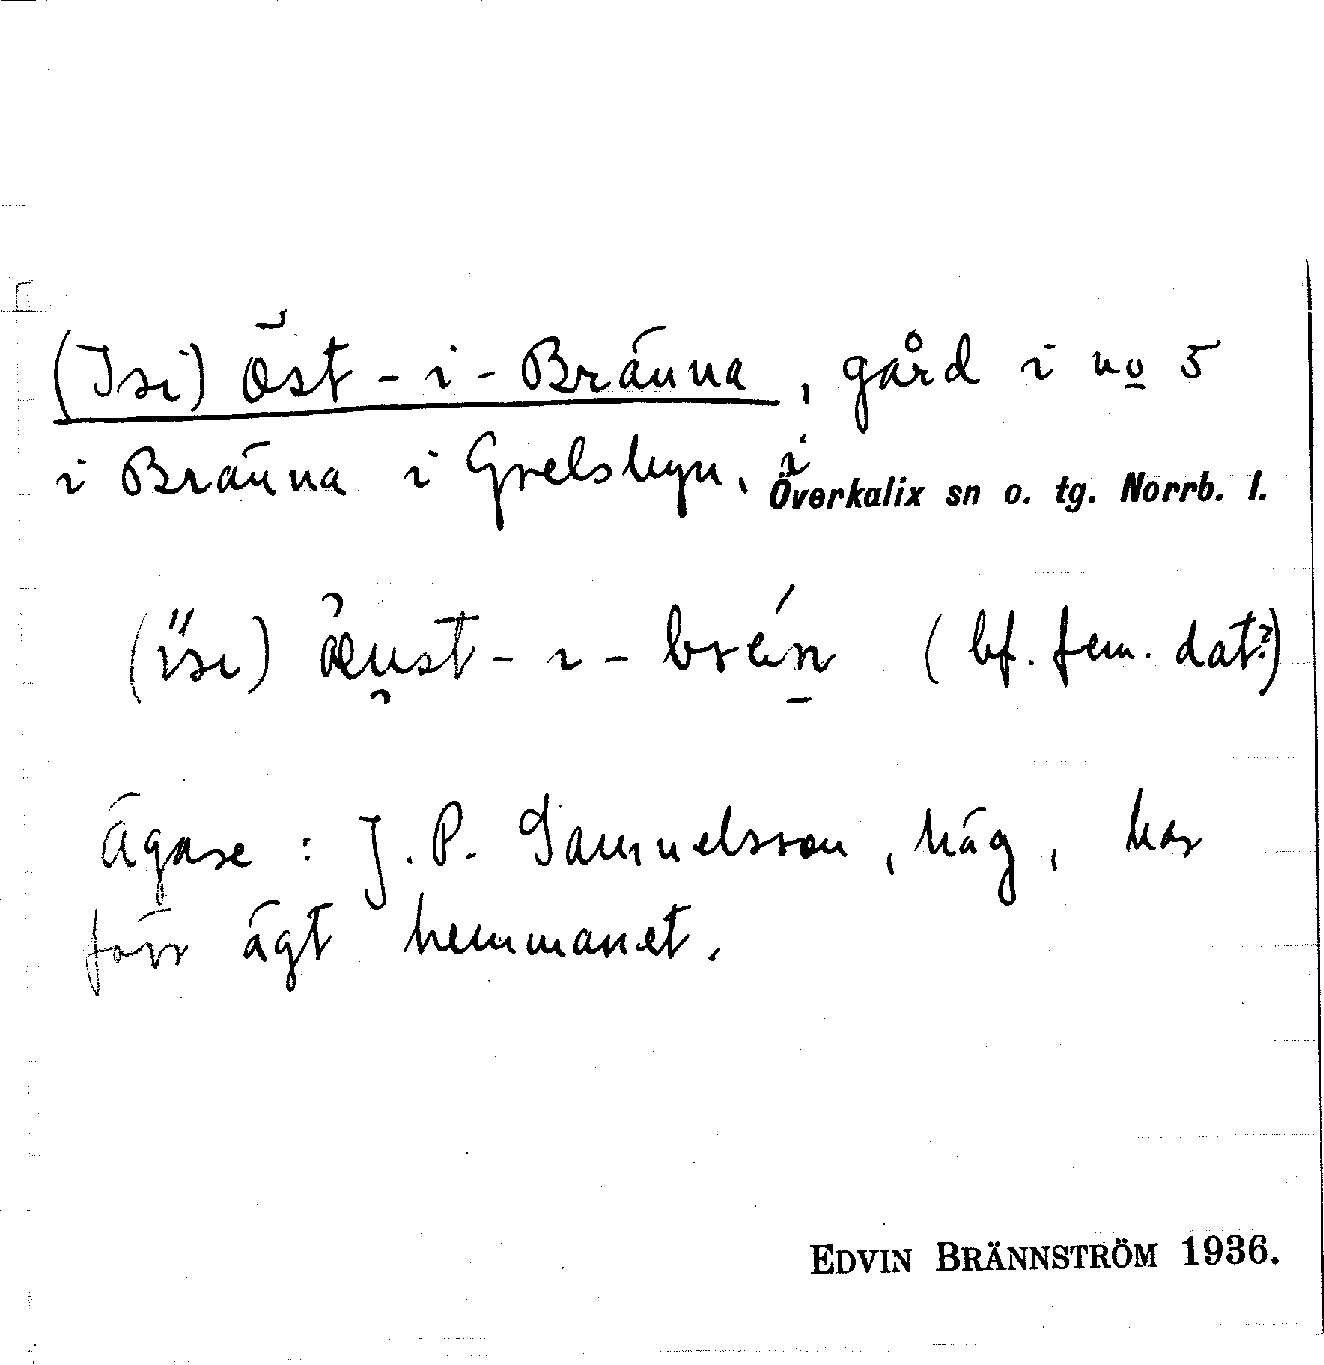 (Isi) Öst-i-Bränna, gård i no 5
i Bränna i Grelsbyn, i Överkalix sn o. tg. Norrb. l.
(ïsi) æust-i-brén (bf. fem. dat?)
Ägare: J. P. Samuelsson, häg, har
förr ägt hemmanet.
EDVIN BRÄNNSTRÖM 1936.